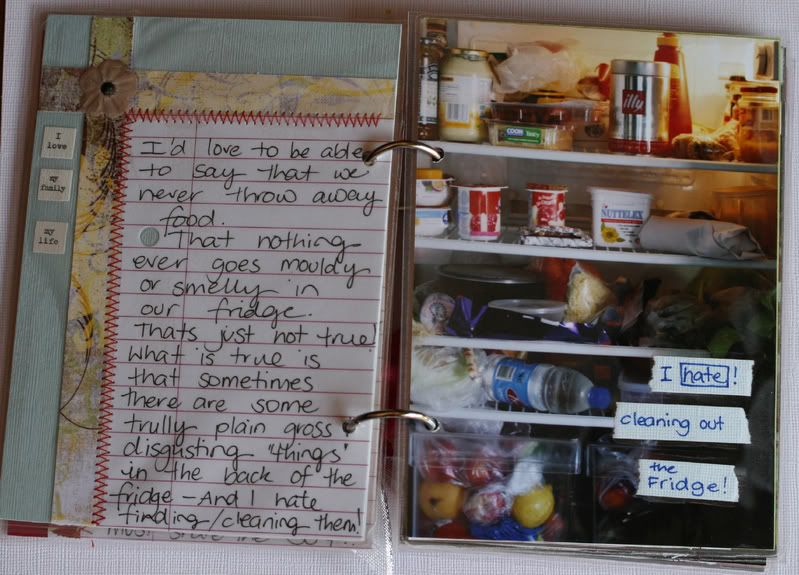 I
love
my
family
my
life
I'd love to be able
to say that we
never throw away
food.
That nothing
ever goes mouldy
or smelly in
our fridge.
Thats just not true!
What is true is
that sometimes
there are some
trully plain gross &
disgusting 'things'
in the back of the
fridge - And I hate
finding/cleaning them!
illy
COON Tasty
NUTTELEX
I hate!
cleaning out
the
Fridge!